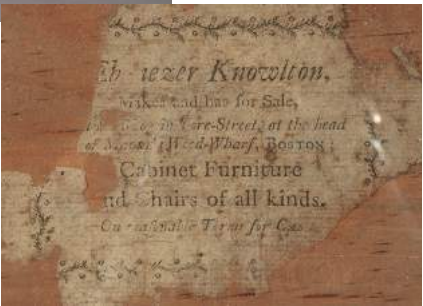 Eb iezer Knowlton,
Makes and has for Sale,
in Fore-Street, at the head
of Wood-Wharf, BOSTON;
Cabinet Furniture
nd Chairs of all kinds.
On reasonable Terms for